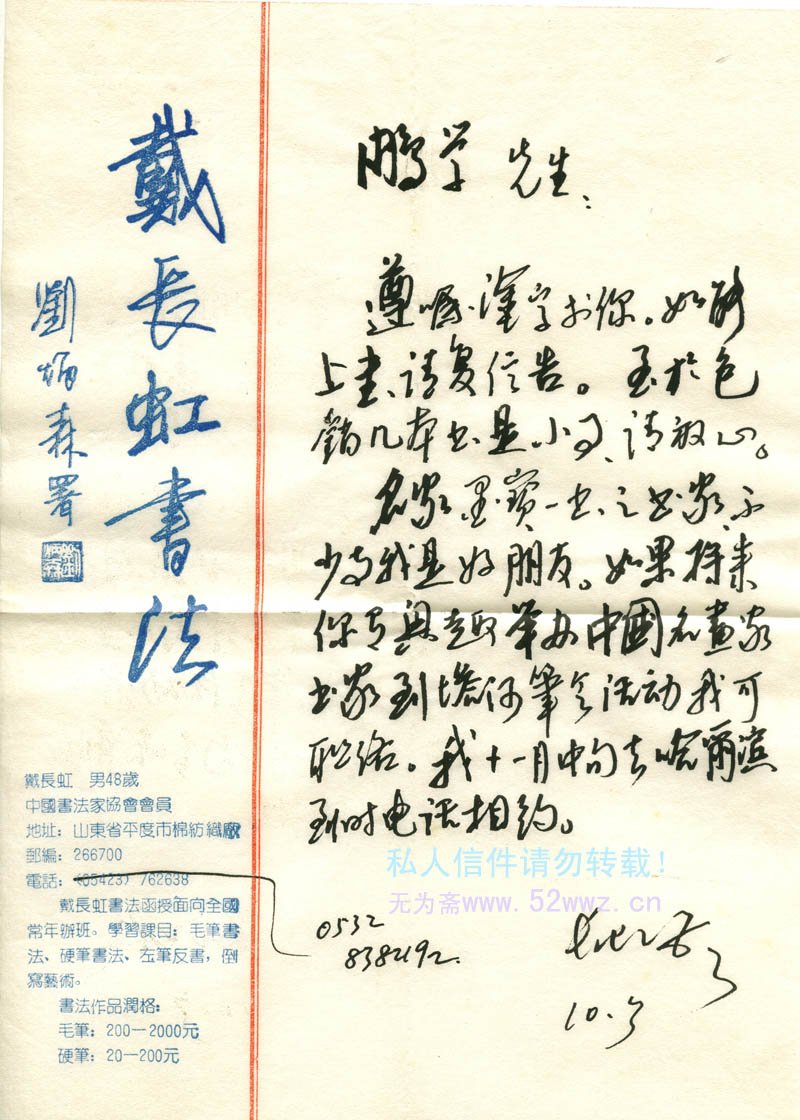 戴長虹書法
劉炳森署
鹏学 先生：
遵嘱 字 你。如
上 书、请复信告。至於包
错几本书、是小事、请放心。
名家墨宝一书、之书家、不
少与我是好朋友。如果将来
你有興趣举办中國名畫家
书家到塔河筆会活动我可
联络。我十一月中旬去哈爾濱
到时电话相约。
10.3
0532
838492.
戴長虹 男48歲
中國書法家協會會員
地址：山東省平度市棉紡織廠
郵編：266700
電話：(05423) 762638
戴長虹書法函授面向全國
常年辦班。學習課目：毛筆書
法、硬筆書法、左筆反書，倒
寫藝術。
書法作品潤格：
毛筆：200—2000元
硬筆：20—200元
私人信件请勿转载！
无为斋www.52wwz.cn